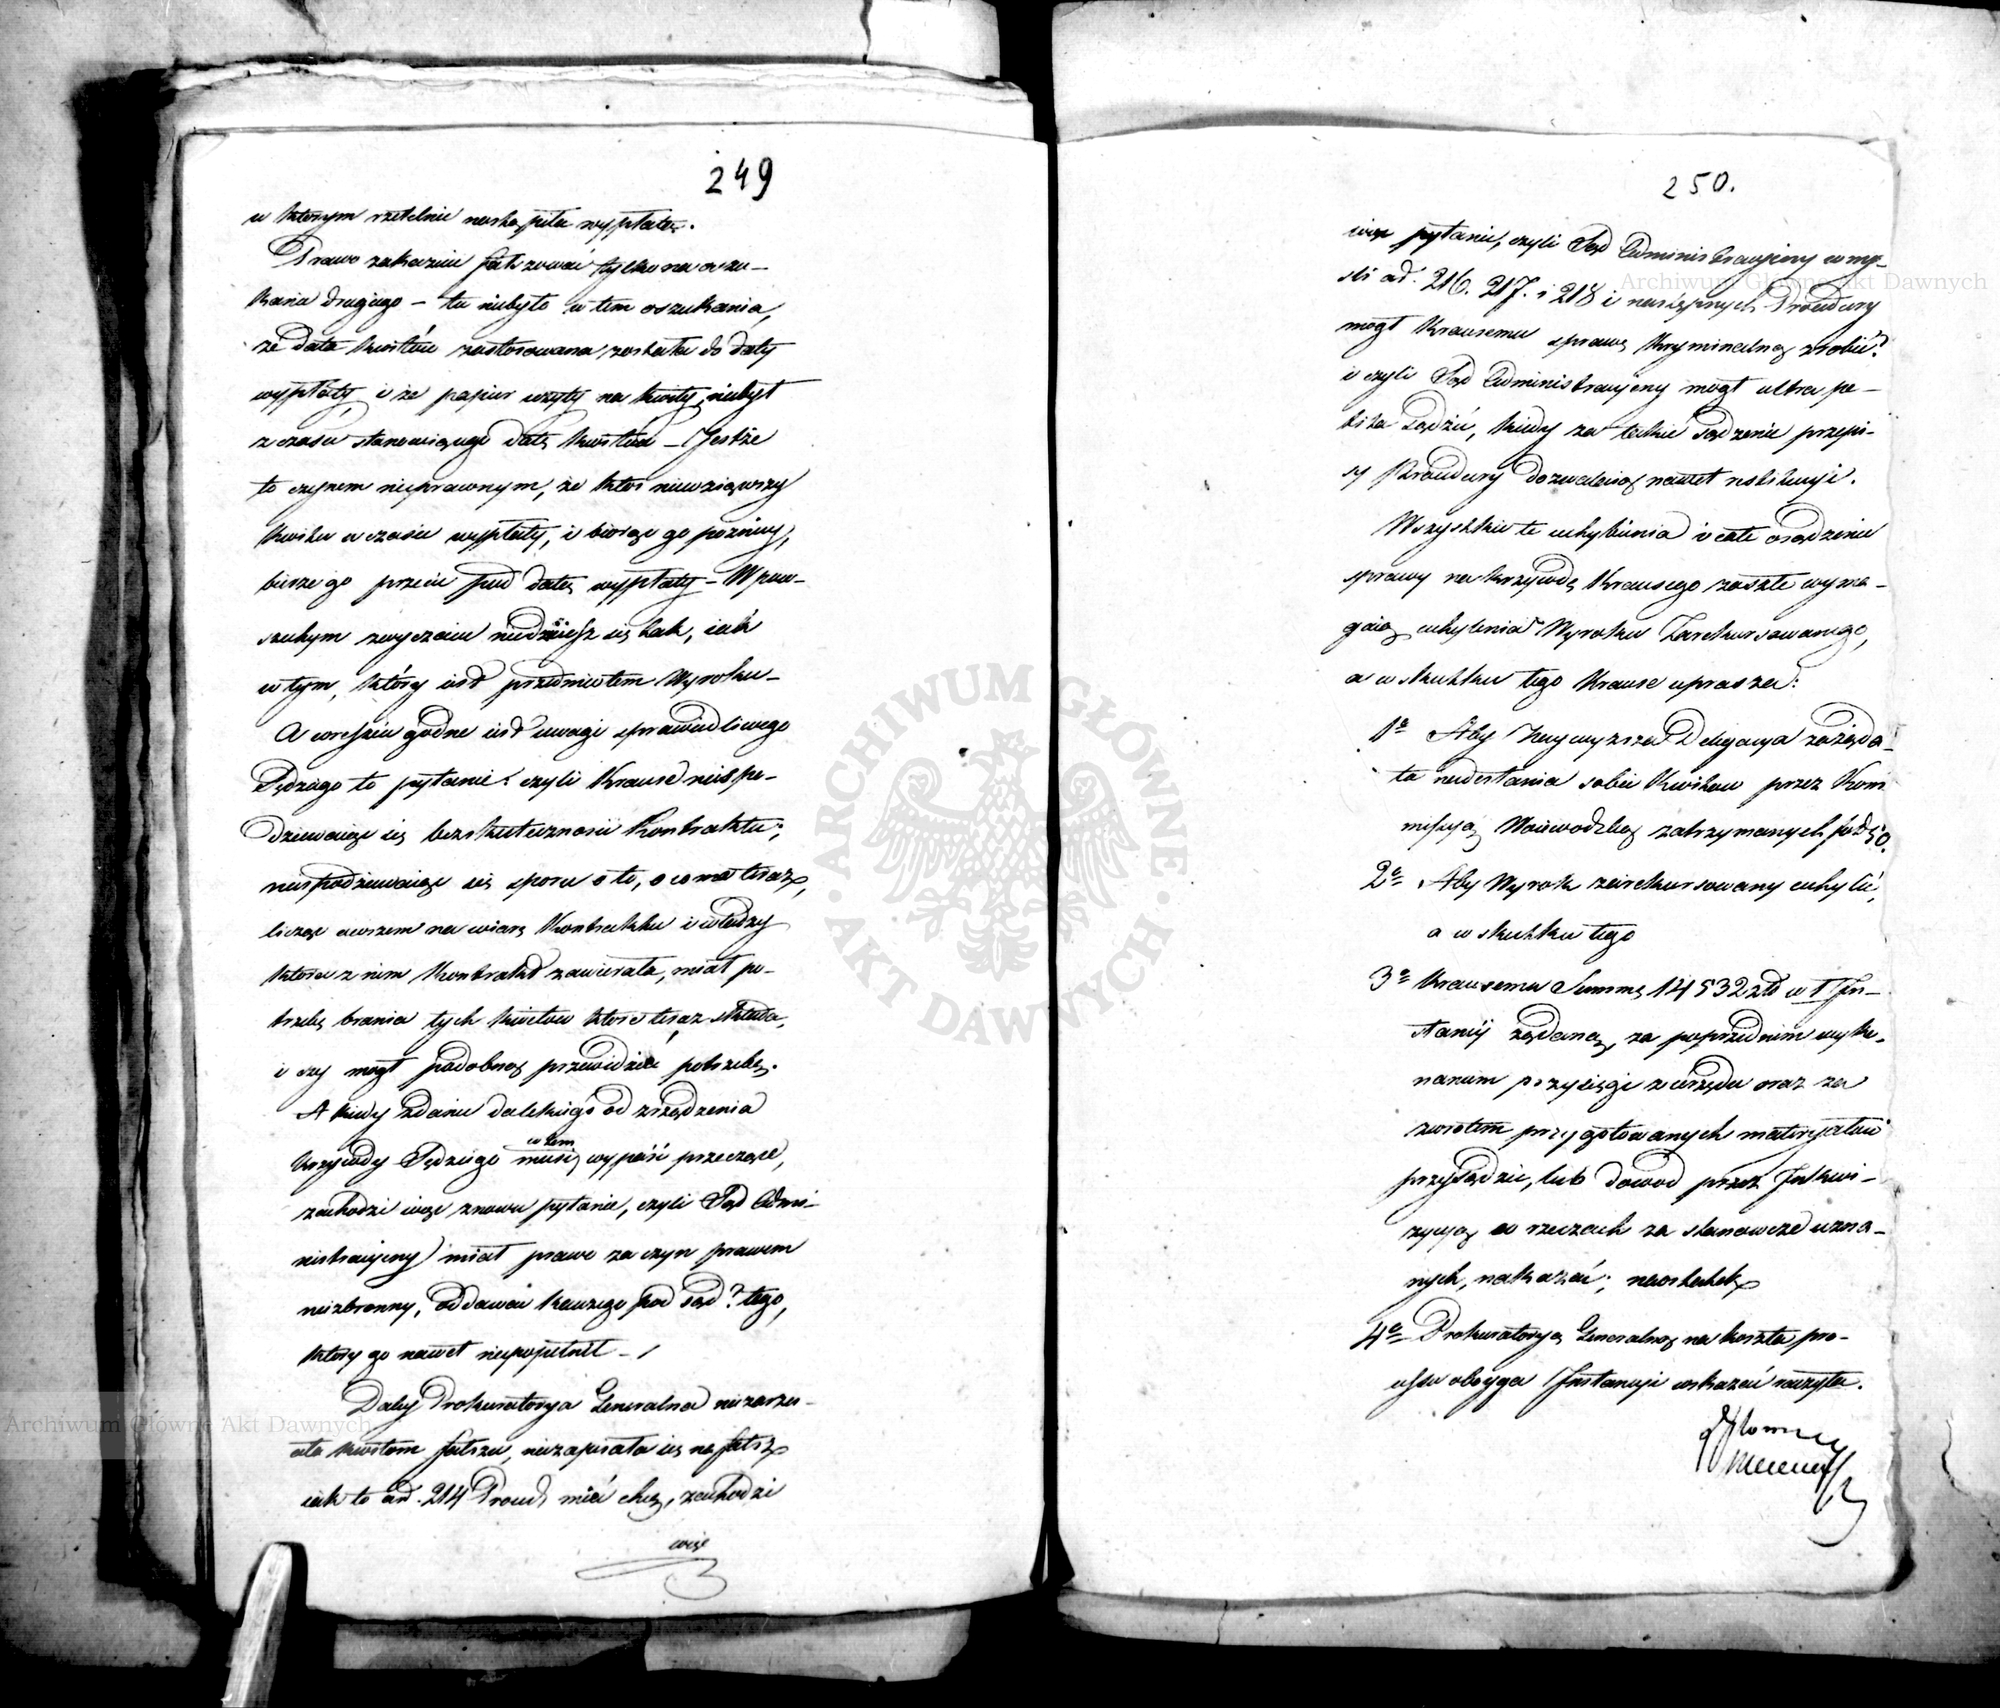 249
w którym rzetelnie nastąpiła wypłata.
Prawo zakazuie fałszować tylko na oszu-
kanie drugiego – tu niebyło w tem oszukania,
że data kwitów zastosowana została do daty
wypłaty, i że papier użyty na kwity, niebył
z czasu stanowiącego datę kwitów – Jestże
to czynem nieprawnym, że ktoś niewziąwszy
kwitu w czasie wypłaty, i biorąc go pozniey,
bierze go przecie pod datą wypłaty – W pow-
szechnym zwyczaiu niedzieje się tak, iak
w tym, który iest przedmiotem Wyroku –
A wreszcie godne iest uwagi sprawiedliwego
Sędziego to pytanie: czyli Krause niespo-
dziewaiąc się bezskuteczności Kontraktu;
niespodziewaiąc się sporu o to, o co ma teraz,
licząc owszem na wiarę Kontraktu i władzy
która z nim Kontrakt zawierała, miał po-
trzebę brania tych kwitów które teraz składa,
i czy mógł podobną przewidzieć potrzebę.
A kiedy zdaniu dalekiego od zrządzenia
w tem
krzywdy Sędziego musi wypaść przeczące,
zachodzi więc znowu pytanie, czyli Sąd Admi-
nistracyiny miał prawo za czyn prawem
niezbronny, oddawać kauzego pod sąd? tego,
który go nawet niepopełnił –
Daley Prokuratorya Generalna niezarzu-
cała kwitom fałszu, niezapisała się na fałsz
iak to art. 214 Proced. mieć chcą, zachodzi
więc
250.
więc pytanie, czyli Sąd Administracyiny w my-
śl art. 216. 217. i 218 i następnych Procedury
mógł Krausemu sprawę kryminalną zrobić?
i czyli Sąd Administracyiny mógł ultra pe-
tita sądzić, kiedy za takie sądzenie przepi-
sy Procedury dozwalaią nawet restytucyi.
Wszystkie te uchybienia i całe osądzenie
sprawy na krzywdę Krausego zaszłe wyma-
gaią uchylenia Wyroku Zarekursowanego,
a w skutku tego Krause uprasza:
1e Aby Naywyższa Delegacya zażąda-
ła nadesłania sobie Kwitów przez Kom
missyą Woiewodzką zatrzymanych pod 50.
2e Aby Wyrok zarekursowany uchylić,
a w skutku tego
3e Krausemu Summę 14532 złt w I In-
stancyi żądaną, za poprzednim wyko-
naniem przysięgi z urzędu oraz za
zwrotem przygotowanych materyałów
przysądzić, lub dowod przez Inkwi-
zycyą w rzeczach za stanowcze uzna-
nych, nakazać; naostatek
4e Prokuratoryą Generalną na koszta pro-
cessu oboyga Instancyi wskazać raczyła.
Archiwum Główne Akt Dawnych
Archiwum Główne Akt Dawnych
ARCHIWUM GŁÓWNE
AKT DAWNYCH